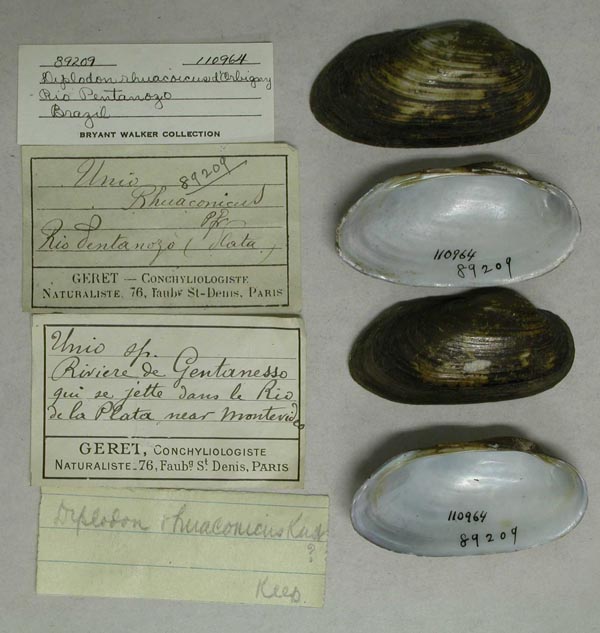 89209 110964
Diplodon rhuacoicus d'Orbigny
Rio Pentanozo
Brazil
BRYANT WALKER COLLECTION
Unio
89209
Rhuaconicus
Pfr
Rio Pentanozo (Plata.)
GERET — CONCHYLIOLOGISTE
NATURALISTE, 76, Faubg St-DENIS, PARIS
Unio sp.
Riviere de Gentanesso
qui se jette dans le Rio
de la Plata near Montevideo
GERET, CONCHYLIOLOGISTE
NATURALISTE_76, FAUBg St DENIS, PARIS
Diplodon rhuaconicus
?
Keep.
110964
89209
110964
89209